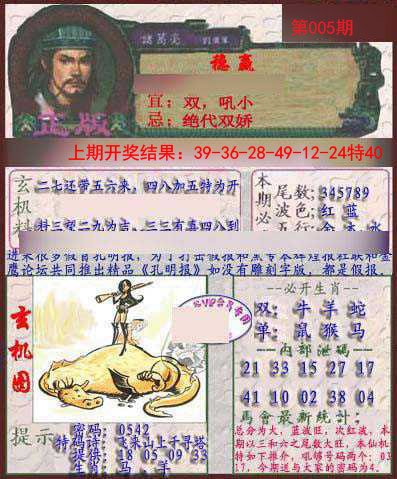 第005期
諸葛亮
稳赢
宜：双，吼小
忌：绝代双娇
正版
上期开奖结果：39-36-28-49-12-24特40
玄机料
二七还带五六来，四八加五特为开
料三望二九为吉，三三有喜四八到
本期必
尾数:345789
波色:红 蓝
五行:金 木 水
进来很多假冒孔明报，为了打击假报和黑专本辉煌报社联和基
鹰论坛共同推出精品《孔明报》如没有雕刻字版，都是假报.
玄机图
--必开生肖--
双：牛 羊 蛇
单：鼠 猴 马
--内部泄码--
21 33 15 27 17
41 10 02 38 04
馬會最新統計:
总分为大，蓝波旺，次红波，本
期以三和六之尾数大旺，本仙机
特如下推介，吼够号码两个：03
17，今期送与大家的密码为4.
提示
密码：0542
特码诗：飞来山上千寻塔
提供：18 05 09 33
生肖：马、羊